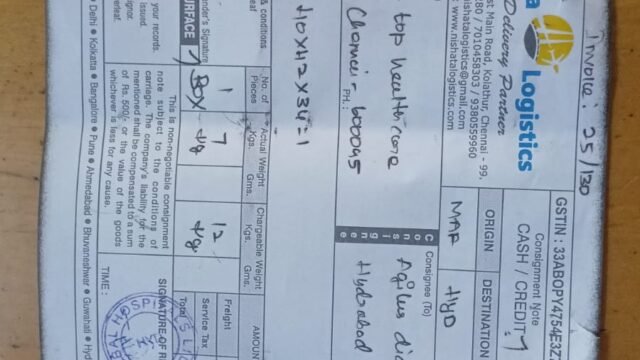 Invoice: 25/130
GSTIN : 33ABOPY4754E3Z
Logistics
Delivery Partner
st Main Road, Kolathur, Chennai - 99.
80 / 7010458303 / 9380559990
: www.nishatalogistics.com
nishatalogistics@gmail.com
Consignment Note
CASH / CREDIT
ORIGIN
DESTINATION
MAA
HYD
top healthcare
Chennai - 600095
PH.:
Consignee (To)
Agilus
Hydrabad
40x42x34=1
& conditions
Sender's Signature
SURFACE
No. of
Pieces
Actual Weight
Kgs.
Gms.
Chargeable Weight
Kgs.
Gms.
AMOUN
1
BOX
7
kg
12
kg
Freight
Service Tax
Total
your records.
This is non-negotiable consignment
note subject to the conditions of
carriage. The company's liability for the
mentioned shall be compensated to a sum
of Rs. 500/- or the value of the goods
whichever is less for any cause.
SIGNATURE OF R
TIME :
HOSPI
Delhi ● Kolkatta ● Bangalore ● Pune ● Ahmedabad ● Bhuvaneshwar ● Guwahati ● Hyd